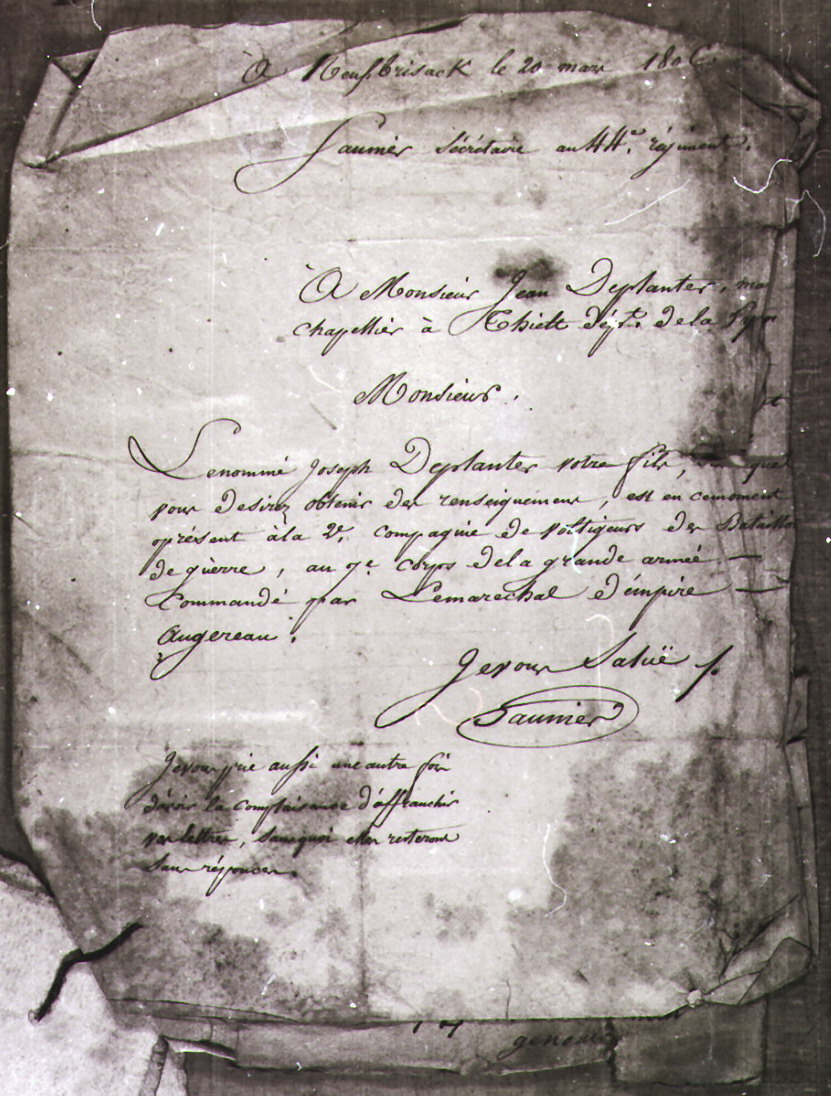 A Neufbrisack le 20 mars 1806
Saunier Sécrétaire au 44.e régiment.
A Monsieur Jean Deplanter, ma
chapellier à Thielt dépt. de la Lys
Monsieur.
Lenommé Joseph Deplanter votre fils, quel
vous desirez obtenir des renseignemens, est en cemoment
oprésent àla 2e. compagnie de voltigeurs des Bataillo
de guerre, au 7e corps dela grande armeé —
Commandé par Lemarechal d'émpire —
Augereau.
Jevous Saluë
Saunier
Jevous prie aussi uneautre fois
d'avoir la complaisance d'affranchir
vos lettres, sansquoi elles resterons
sans réponces.
17
genou